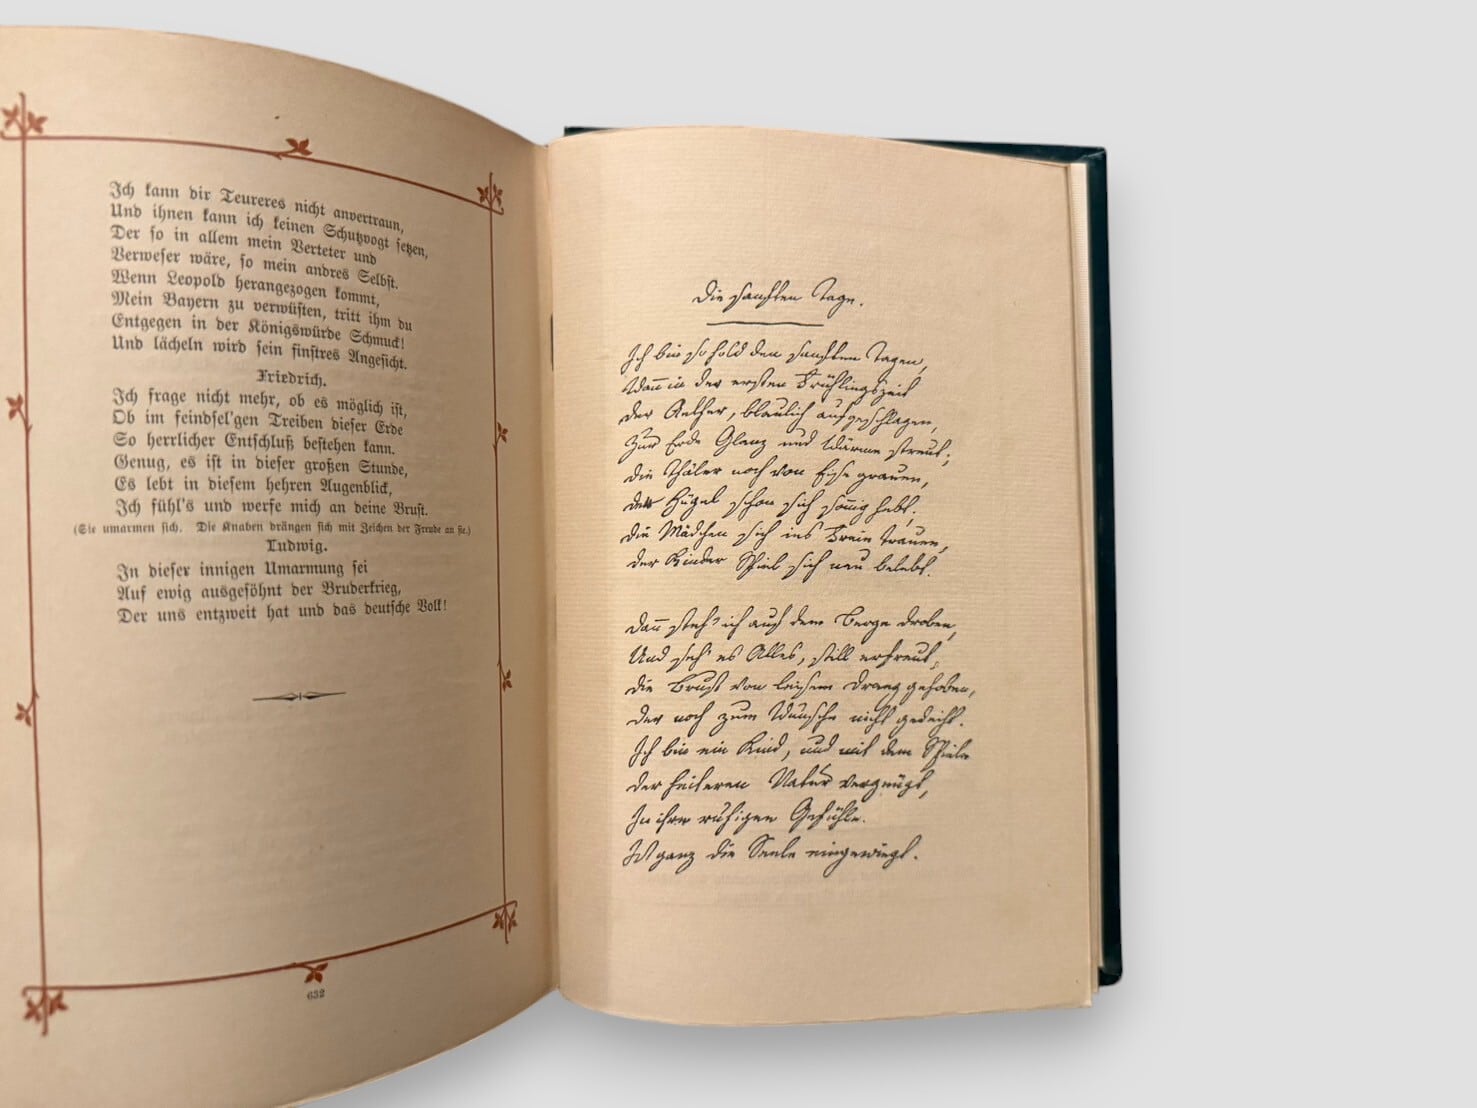 Ich kann dir Teureres nicht anvertraun,
Und ihnen kann ich keinen Schutzvogt setzen,
Der so in allem mein Verteter und
Verweser wäre, so mein andres Selbst.
Wenn Leopold herangezogen kommt,
Mein Bayern zu verwüsten, tritt ihm du
Entgegen in der Königswürde Schmuck!
Und lächeln wird sein finstres Angesicht.
Friedrich.
Ich frage nicht mehr, ob es möglich ist,
Ob im feindsel'gen Treiben dieser Erde
So herrlicher Entschluß bestehen kann.
Genug, es ist in dieser großen Stunde,
Es lebt in diesem hehren Augenblick,
Ich fühl's und werfe mich an deine Brust.
(Sie umarmen sich. Die Knaben drängen sich mit Zeichen der Freude an sie.)
Ludwig.
In dieser innigen Umarmung sei
Auf ewig ausgesöhnt der Bruderkrieg,
Der uns entzweit hat und das deutsche Volk!
632
Die sanften Tage.
Ich bin so hold den sanften Tagen,
Wann in der ersten Frühlingszeit
Der Aether, blaulich aufgeschlagen,
Zur Erde Glanz und Wärme streut;
Die Thäler noch von Eise grauen,
Der Hügel schon sich sonnig hebt,
Die Mädchen sich ins Freie trauen,
Der Kinder Spiel sich neu belebt.
Dann steh' ich auf dem Berge droben,
Und seh' es Alles, still erfreut,
Die Brust von leisem Drang gehoben,
Der noch zum Wunsche nicht gedeiht.
Ich bin ein Kind, und mit dem Spiele
Der heiteren Natur vergnügt,
In ihre ruhigen Gefühle
Ist ganz die Seele eingewiegt.